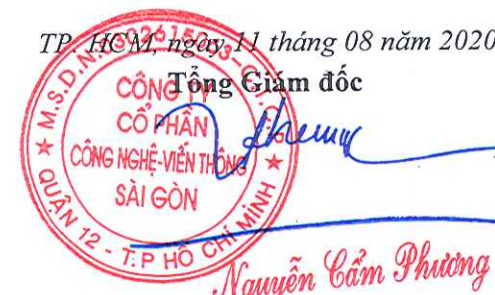 TP. HCM, ngày 11 tháng 08 năm 2020
Tổng Giám đốc
CÔNG TY
CỔ PHẦN
CÔNG NGHỆ-VIỄN THÔNG
SÀI GÒN
QUẬN 12 - T.P HỒ CHÍ MINH
Nguyễn Cẩm Phương